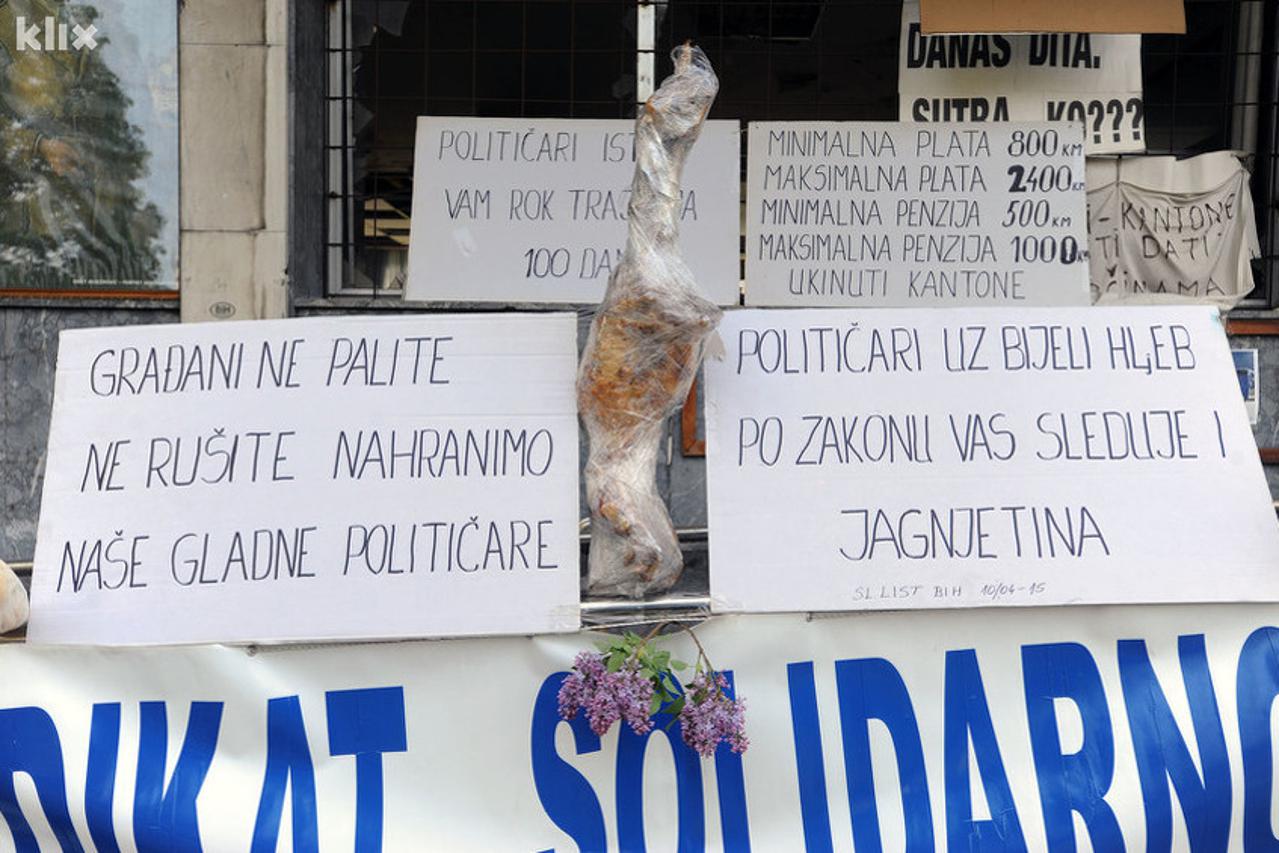 klix
DANAS DITA.
SUTRA KO???
POLITIČARI
VAM ROK
100
MINIMALNA PLATA 800 KM
MAKSIMALNA PLATA 2400 KM
MINIMALNA PENZIJA 500 KM
MAKSIMALNA PENZIJA 1000
UKINUTI KANTONE
KANTONE
DATI
BIH
GRAĐANI NE PALITE
NE RUŠITE NAHRANIMO
NAŠE GLADNE POLITIČARE
POLITIČARI UZ BIJELI HLJEB
PO ZAKONU VAS SLEDUJE I
JAGNJETINA
SL LIST BIH 10/04-15
DIKAT SOLIDARNO